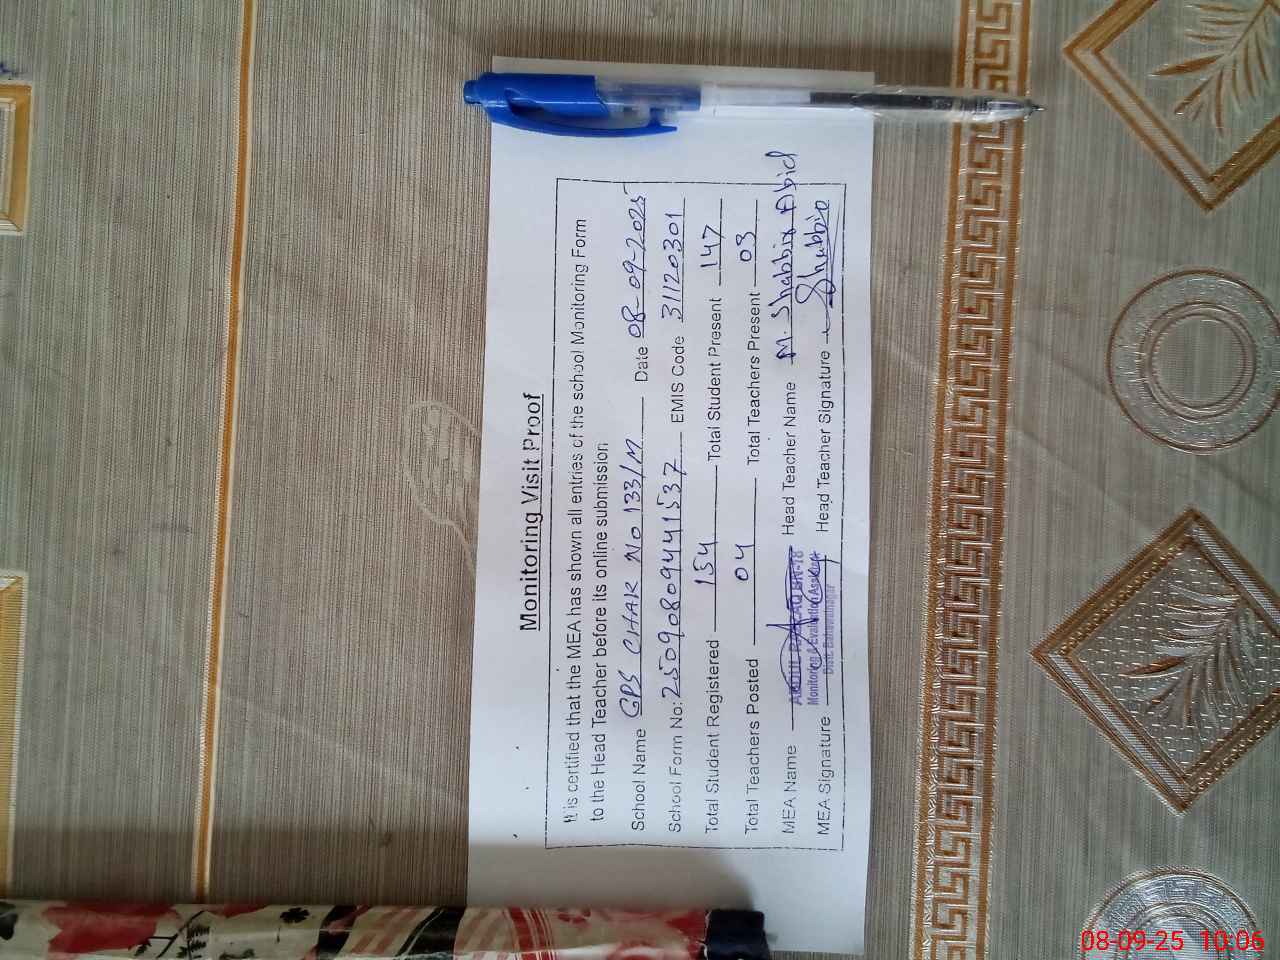 Monitoring Visit Proof
It is certified that the MEA has shown all entries of the school Monitoring Form
to the Head Teacher before its online submission
School Name GPS CHAK No 133/M Date 08-09-2025
School Form No: 25090809441537 EMIS Code 31120301
Total Student Registered 154 Total Student Present 147
Total Teachers Posted 04 Total Teachers Present 03
MEA Name ABDUL RAZZAQ BN-18 Head Teacher Name M. Shabbir Abid
Monitoring & Evaluation Assistant
MEA Signature Distt. Bahawalnagar Head Teacher Signature Shabbir
08-09-25 10:06